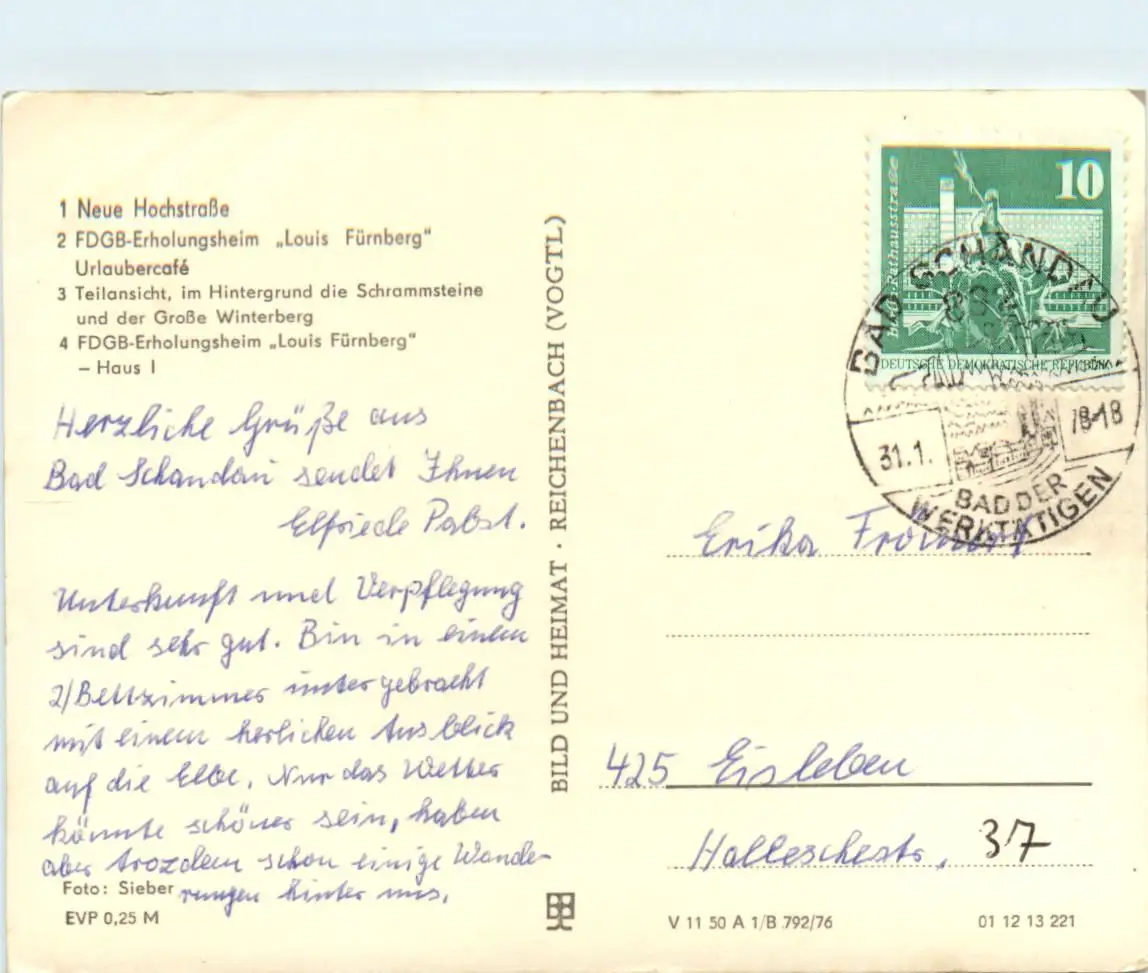 1 Neue Hochstraße
2 FDGB-Erholungsheim „Louis Fürnberg"
Urlaubercafé
3 Teilansicht, im Hintergrund die Schrammsteine
und der Große Winterberg
4 FDGB-Erholungsheim „Louis Fürnberg"
– Haus I
Herzliche Grüße aus
Bad Schandau sendet Ihnen
Elfriede Pabst.
Unterkunft und Verpflegung
sind sehr gut. Bin in einem
2/Bettzimmer untergebracht
mit einem herlichen Ausblick
auf die Elbe. Nur das Wetter
könnte schöner sein, haben
aber trozdem schon einige Wande-
rungen hinter uns.
Foto: Sieber
EVP 0,25 M
BILD UND HEIMAT · REICHENBACH (VOGTL)
10
Rathausstraße
DEUTSCHE DEMOKRATISCHE REPUBLIK
BAD SCHANDAU
31.1.
78-18
BAD DER
WERKTÄTIGEN
Erika
425 Eisleben
Halleschestr. 37
V 11 50 A 1/B 792/76
01 12 13 221